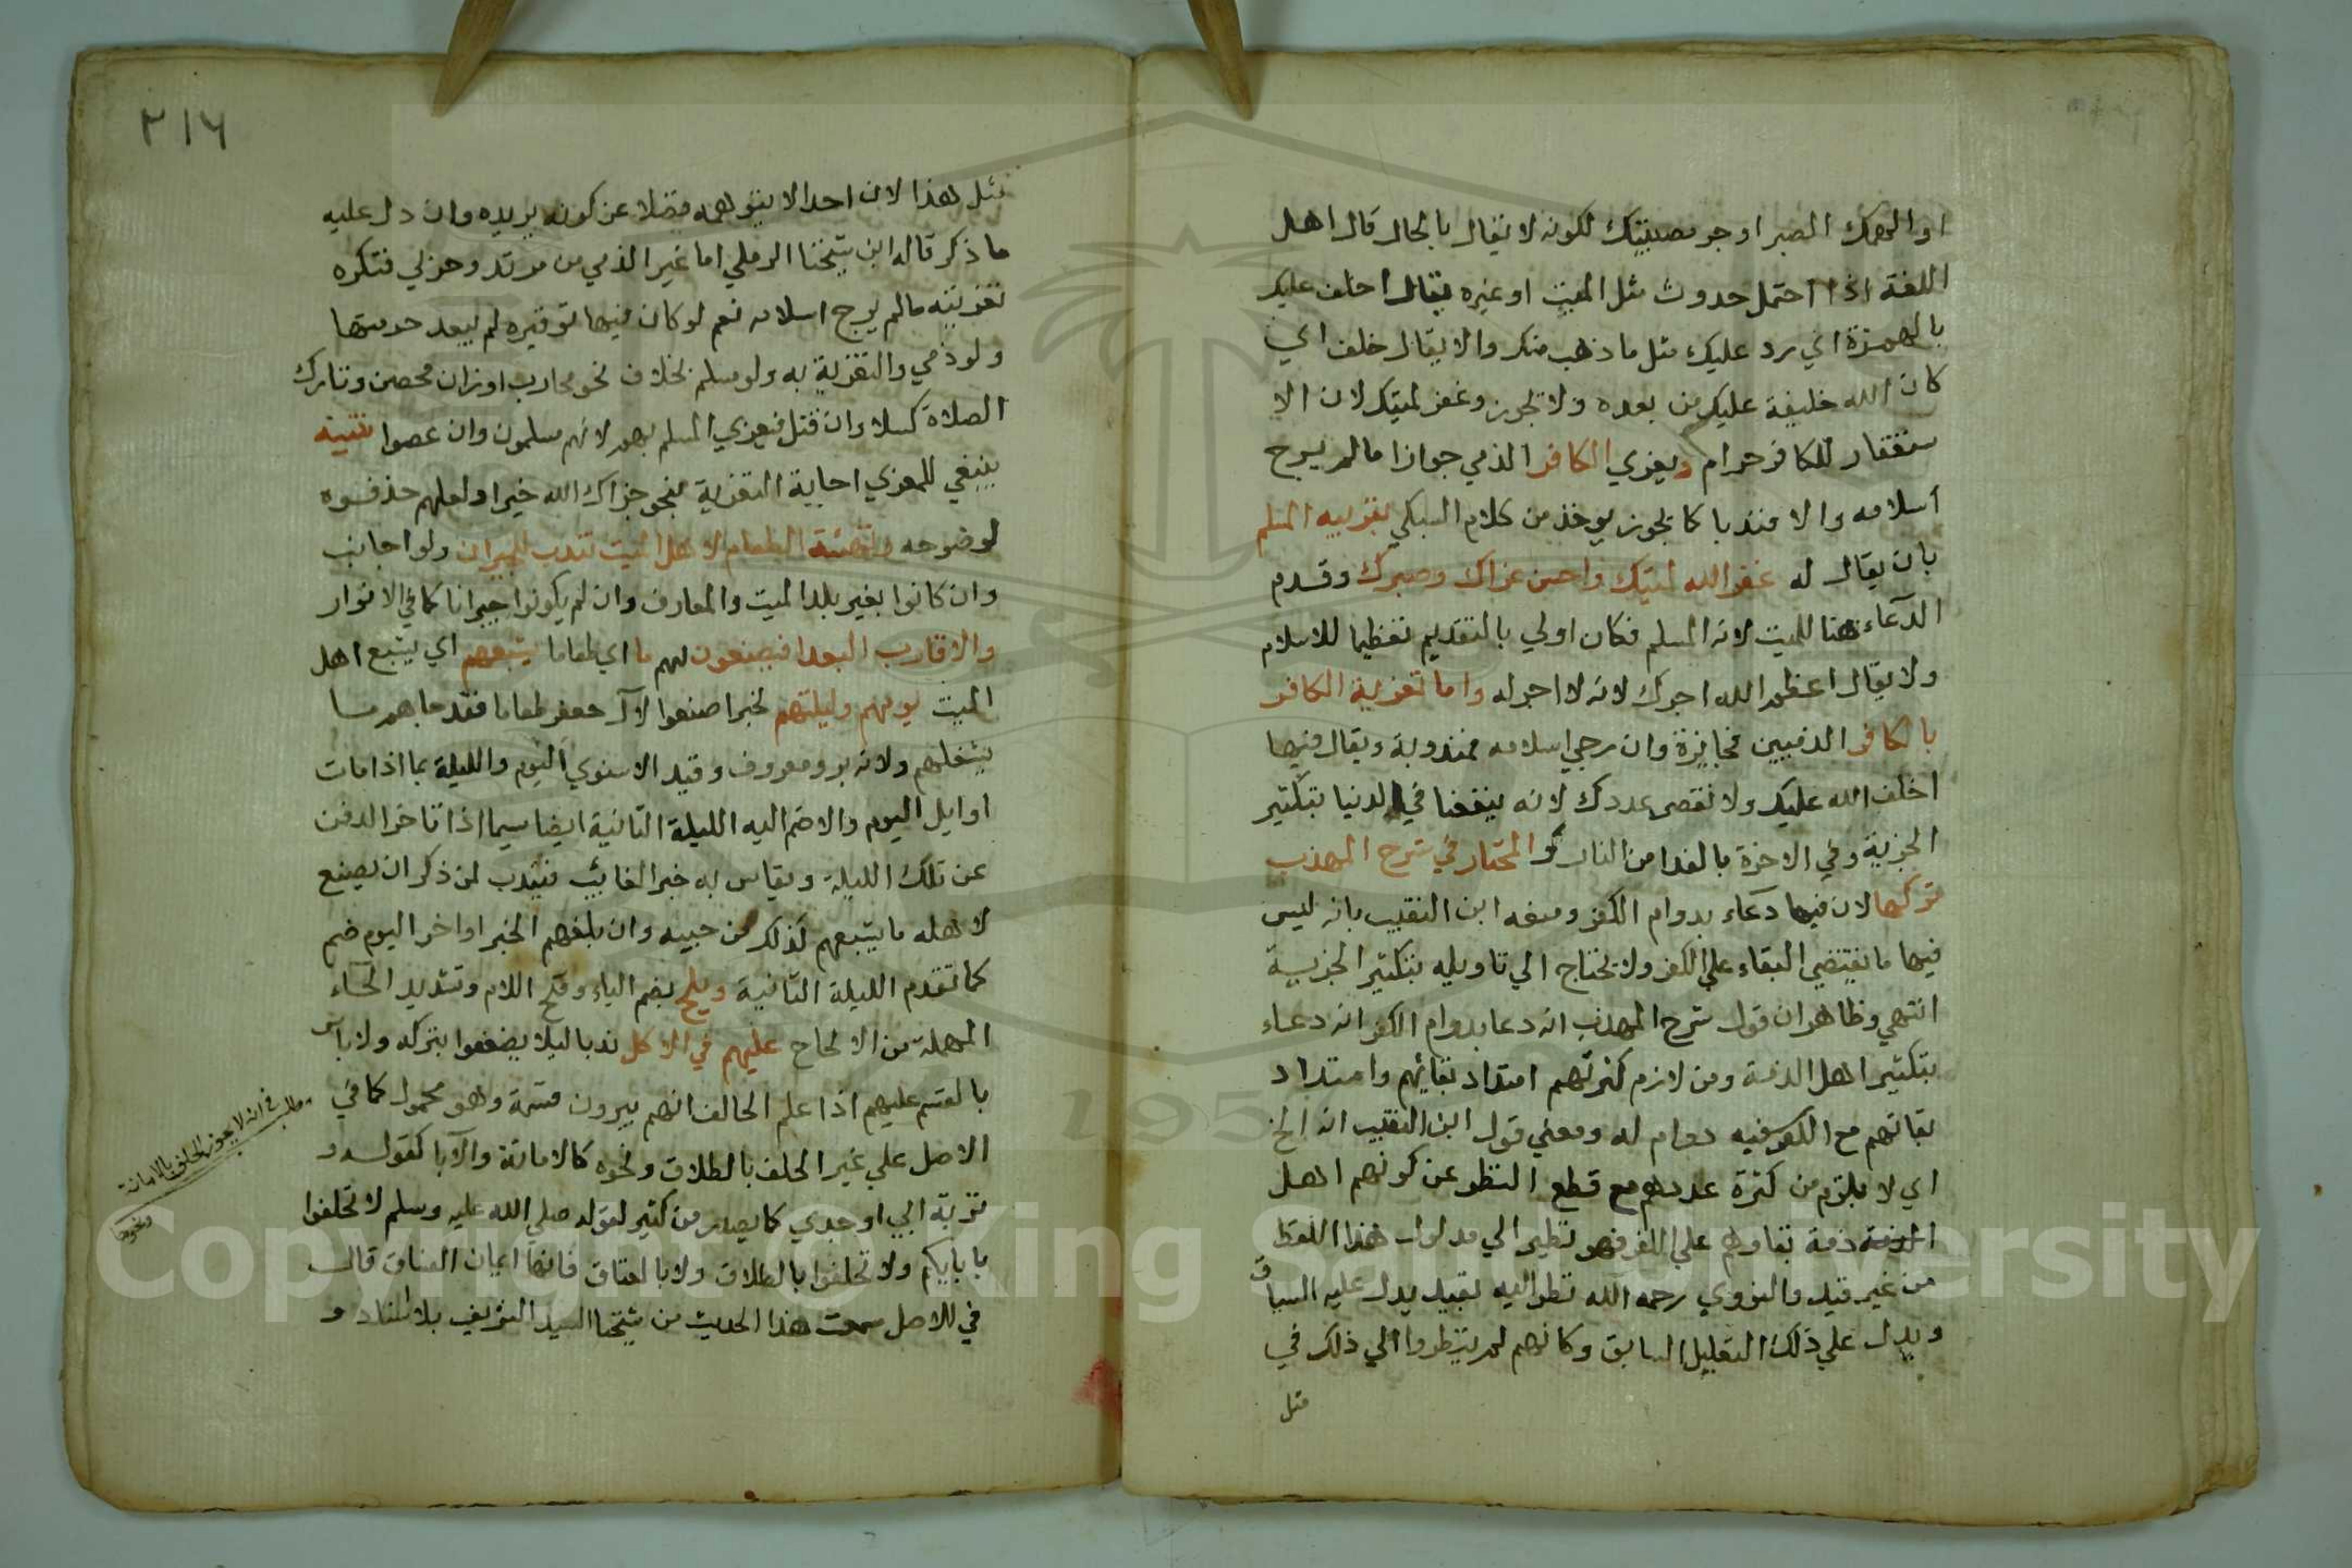 او الهمك الصبر او جبر مصيبتك لكونه لا يقال بالحال قال اهل
اللغة اذا احتمل حدوث مثل الميت او غيره يقال اخلف عليك
بالهمزة اي رد عليك مثل ما ذهب منك والا يقال خلف اي
كان الله خليفة عليك من بعده ولا يجوز وغفر لميتك لان الا
ستغفار للكافر حرام ويعزي الكافر الذمي جوازا مالم يرج
اسلامه والا فندبا كما يجوز يوخذ من كلام السبكي بقريبه المسلم
بان يقال له غفر الله لميتك واحسن عزاك وصبرك وقدم
الدعاء هنا للميت لانه المسلم فكان اولي بالتقديم تعظيما للاسلام
ولا يقال اعظم الله اجرك لانه لا اجر له واما تعزية الكافر
بالكافر الذميين فجايزة وان رجي اسلامه فمندوبة ويقال فيها
اخلف الله عليك ولا نقص عددك لانه ينفعنا في الدنيا بتكثير
الجزية وفي الاخرة بالفدا من النار والمختار في شرح المهذب
تركها لان فيها دعاء بدوام الكفر ومنعه ابن النقيب بانه ليس
فيها ما يقتضي البقاء علي الكفر ولا يحتاج الي تاويله بتكثير الجزية
انتهي وظاهر ان قول شرح المهذب انه دعا بدوام الكفر انه دعاء
بتكثير اهل الذمة ومن لازم كثرتهم امتداد بقائهم وامتداد
بقائهم مع الكفر فيه دوام له ومعني قول ابن النقيب انه الخ
اي لا يلزم من كثرة عددهم مع قطع النظر عن كونهم اهل
الذمة ذمة بقاوهم علي الكفر فهو نظير الي مدلول هذا اللفظ
من غير قيد والنووي رحمه الله نظر اليه بقيد يدل عليه السياق
ويدل علي ذلك التعليل السابق وكانهم لم ينظروا الي ذلك في
مثل
٢١٦
مثل هذا لان احدا لا يتوهمه فضلا عن كونه يريده وان دل عليه
ما ذكر قاله ابن شيخنا الرملي اما غير الذمي من مرتد وحربي فتكره
تعزيته مالم يرج اسلامه نعم لو كان فيها توقيره لم يبعد حرمتها
ولو ذمي والتعزية به ولو مسلم بخلاف نحو محارب او زان محصن وتارك
الصلاة كسلا وان قتل فيعزي المسلم بهم لانهم مسلمون وان عصوا تنبيه
ينبغي للمعزي اجابة التعزية بنحو جزاك الله خيرا ولعلهم حذفوه
لوضوحه وتهيئة الطعام لاهل الميت تندب للجيران ولو اجانب
وان كانوا بغير بلد الميت والمعارف وان لم يكونوا جيرانا كما في الانوار
والاقارب البعدا فيصنعون لهم ما اي طعاما يشبعهم اي يشبع اهل
الميت يومهم وليلتهم لخبر اصنعوا لآل جعفر طعاما فقد جاهم ما
يشغلهم ولانه بر ومعروف وقيد الاسنوي اليوم والليلة بما اذا مات
اوايل اليوم والا ضم اليه الليلة الثانية ايضا سيما اذا تاخر الدفن
عن تلك الليلة ويقاس به خبر الغائب فيندب لمن ذكر ان يصنع
لاهله ما يشبعهم لذلك من حينه وان بلغهم الخبر اواخر اليوم ضم
كما تقدم الليلة الثانية ويلح بضم الياء وفتح اللام وتشديد الحاء
المهملة من الالحاح عليهم في الاكل ندبا ليلا يضعفوا بتركه ولا باس
بالقسم عليهم اذا علم الحالف انهم يبرون قسمه وهو محمول كما في
الاصل علي غير الحلف بالطلاق ونحوه كالامانة والآبا كقوله و
تربة ابي او جدي كما يصدر من كثير لقوله صلي الله عليه وسلم لا تحلفوا
بابايكم ولا تحلفوا بالطلاق ولا بالعتاق فانها ايمان الفساق قال
في الاصل سمعت هذا الحديث من شيخنا السيد الشريف بلا اسناد و
مطلب في انه لا يجوز الحلف بالامانة
ونحوها
Copyright © King Saud University
1957